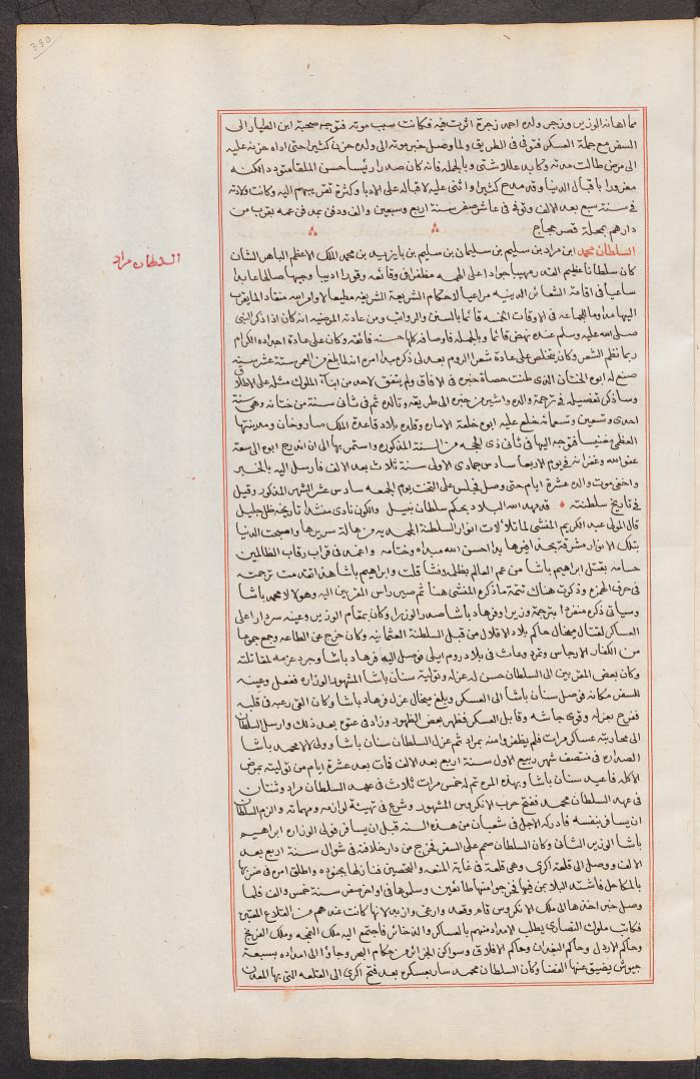 330
مما اهانه الوزير وزجر ولده احمد زجرة اثرت فيه فكانت سبب موته فتوجه صحبة ابن الطيار الى
السفر مع جملة العسكر فتوفى فى الطريق ولما وصل خبر موته الى والده حزن كثيرا حتى اداه حزنه عليه
الى مرض طالت مدته وكابد عللا شتى وبالجملة فانه كان صدرا رئيسا حسن الملقا متوددا لكنه
مغرورا باقبال الدنيا وقد مدح كثيرا واثنى عليه لاقباله على الادبا وكثرة تقربهم اليه وكانت ولادته
فى سنة سبع بعد الالف وتوفى فى عاشر صفر سنة اربع وسبعين والف ودفن عند فى عمه بقرب من
دارهم بمحلة قصر حجاج
السلطان محمد ابن مراد بن سليم بن سليمان بن سليم بن بايزيد بن محمد الملك الاعظم الباهر الشان
السلطان مراد
كان سلطانا عظيم القدر مهيبا جوادا على الهمه مظفرا فى وقائعه وقورا اديبا وجيها صالحا عابدا
ساعيا فى اقامة الشعائر الدينيه مراعيا لاحكام الشريعة الشريفه مطيعا لاوامر الله منقادا لما يقرب
اليها مداوما للجماعه فى الاوقات الخمسه قائما بالسنن والرواتب ومن عادته المرضيه انه كان اذا ذكر النبى
صلى الله عليه وسلم عنده نهض قائما وبالجملة فاوصافه كلها حسنه فائقة وكان على عادة اجداده الكرام
ربما نظم الشعر وكان يتخلص على عادة شعرا الروم بعدلى ذكر مبدا امره انه لما بلغ من العمر ستة عشر سنه
صنع له ابوه الختان الذى طنت حصاة خبره فى الافاق ولم يتفق لاحد من ابناء الملوك مثله على الاطلاق
وساذكر تفصيله فى ترجمة والده واشير من خبره الى طريقه وتالده ثم فى ثانى سنة من ختانه وهى سنة
احدى وتسعين وتسعمائه خلع عليه ابوه خلعة الاماره وقلده بلاد قاعدة الملك صاروخان ومدينتها
العظمى مغنيسا فتوجه اليها فى ثانى ذى الحجه من السنة المذكوره واستمر بها الى ان اندرج ابوه الى سعة
عفو الله وغفرانه فى يوم الاربعا سادس جمادى الاولى سنة ثلاث بعد الالف فارسل اليه بالخبر
واخفى موت والده عشرة ايام حتى وصل فجلس على التخت يوم الجمعه سادس عشر الشهر المذكور وقيل
فى تاريخ سلطنته قد مهد الله البلاد بحكم سلطان نبيل والكون نادى منشدا تاريخه ظل جليل
قال المولى عبد الكريم المنشى لما تلالات انوار السلطنة المحمديه من هالة سريرها واصبحت الدنيا
بتلك الانوار مشرقة بحذافيرها بدا احسن الله مبداه وختامه واغمد فى قراب رقاب الظالمين
حسامه بقتل ابراهيم باشا من عم العالم بظلمه وفشا قلت وابراهيم باشا هذا تقدمت ترجمته
فى حرف الهمزه وذكرت هناك تتمة ما ذكره المنشى هنا ثم صير راس المقربين اليه وهو لالا محمد باشا
وسياتى ذكره منفردا بترجمة وزيرا وفرهاد باشا صدر الوزرا وكان بمقام الوزير وعينه سردارا على
العساكر لقتال ميخال حاكم بلاد الافلاق من قبل السلطنة العثمانيه وكان خرج عن الطاعه وجمع جموعا
من الكفار الارجاس وتمرد وعاث فى بلاد روم ايلى فوصل اليه فرهاد باشا وجرد عزمه لمقاتلته
وكان بعض المقربين الى السلطان حسن له عزله وتولية سنان باشا المشهور الوزاره ففعل وعينه
للسفر مكانه فوصل سنان باشا الى العسكر وبلغ ميخال عزل فرهاد باشا وكان القى رعبه فى قلبه
ففرح بعزله وقوى جاشه وقابل العسكر فظهر بعض الظهور وزاد فى عتوه بعد ذلك وارسل السلطان
الى محاربته عساكر مرات فلم يظفر وامنه بمراد ثم عزل السلطان سنان باشا وولى لالا محمد باشا
الصداره فى منتصف شهر ربيع الاول سنة اربعه بعد الالف فات بعد عشرة ايام من توليته بمرض
الاكله فاعيد سنان باشا وبهذه المره تم له خمس مرات ثلاث فى عهد السلطان مراد وثنتان
فى عهد السلطان محمد ففتح حرب الانكروس المشهور وشرع فى تهيئة لوازمه ومهماته والزم السلطان
ان يسافر بنفسه فادركه الاجل فى شعبان من هذه السنه قبل ان يسافر فولى الوزاره ابراهيم
باشا الوزير الثانى وكان السلطان صمم على السفر فخرج من دار خلافته فى شوال سنة اربع بعد
الالف ووصل الى قلعة اكرى وهى قلعة فى غاية المنعه والتحصين فنازلها بجنوده واطلق امره فى ضربها
بالمكاحل فاشتد البلا بمن فيها فخرجوا منها طائعين وسلموها فى اواخر صفر سنة خمس والف فلما
وصل خبر اخذها الى ملك الانكروس قام وقعد وارغى وازبد لانها كانت عندهم من القلاع المعتبره
فكاتب ملوك النصارى يطلب الامداد منهم بالعساكر والذخائر فاجتمع اليه ملك النمجه وملك الفرنج
وحاكم الاردل وحاكم البغدان وحاكم الافلاق وسواكن الجزائر من حكام البحر وجاؤا الى امداده بسبعة
جيوش يضيق عنها الفضا وكان السلطان محمد سار بعسكره بعد فتح اكرى الى القلعه التى بها المعدن